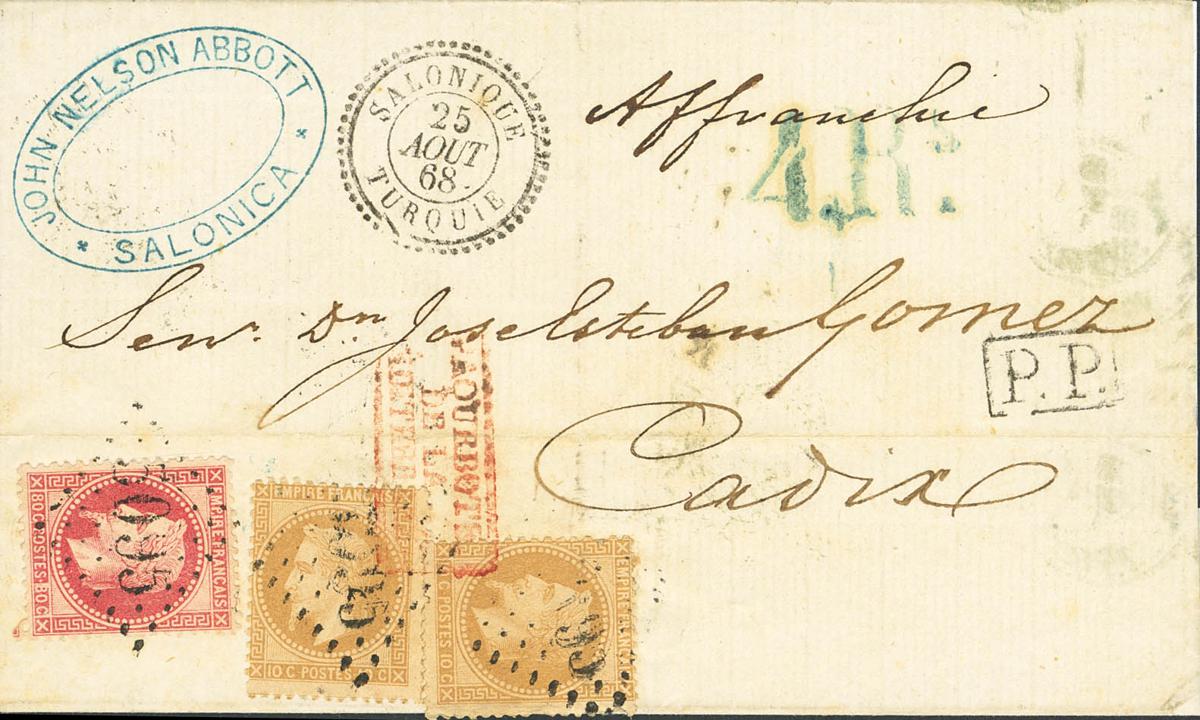 JOHN NELSON ABBOTT
* SALONICA *
SALONIQUE
25
AOUT
68.
TURQUIE
Affranchie
4.Rs.
Senr. Dn Jose Esteban Gomez
P.P.
Cadix
DE LA
EMPIRE FRANÇAIS
80.C POSTES 80.C
EMPIRE FRANÇAIS
10 C POSTES 10 C
EMPIRE FRANÇAIS
10 C POSTES 10 C